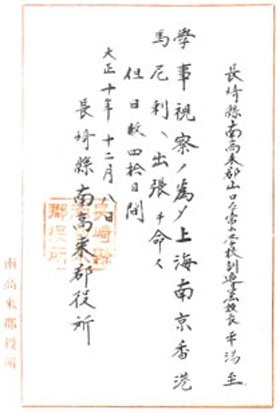 長崎縣南高来郡山口尋常小学校訓導兼校長 平湯至
學事視察ノ為メ上海南京香港
馬尼利ヘ出張ヲ命ス
但日数四拾日間
大正十年十二月八日
長崎縣南高来郡役所
南高來郡役所